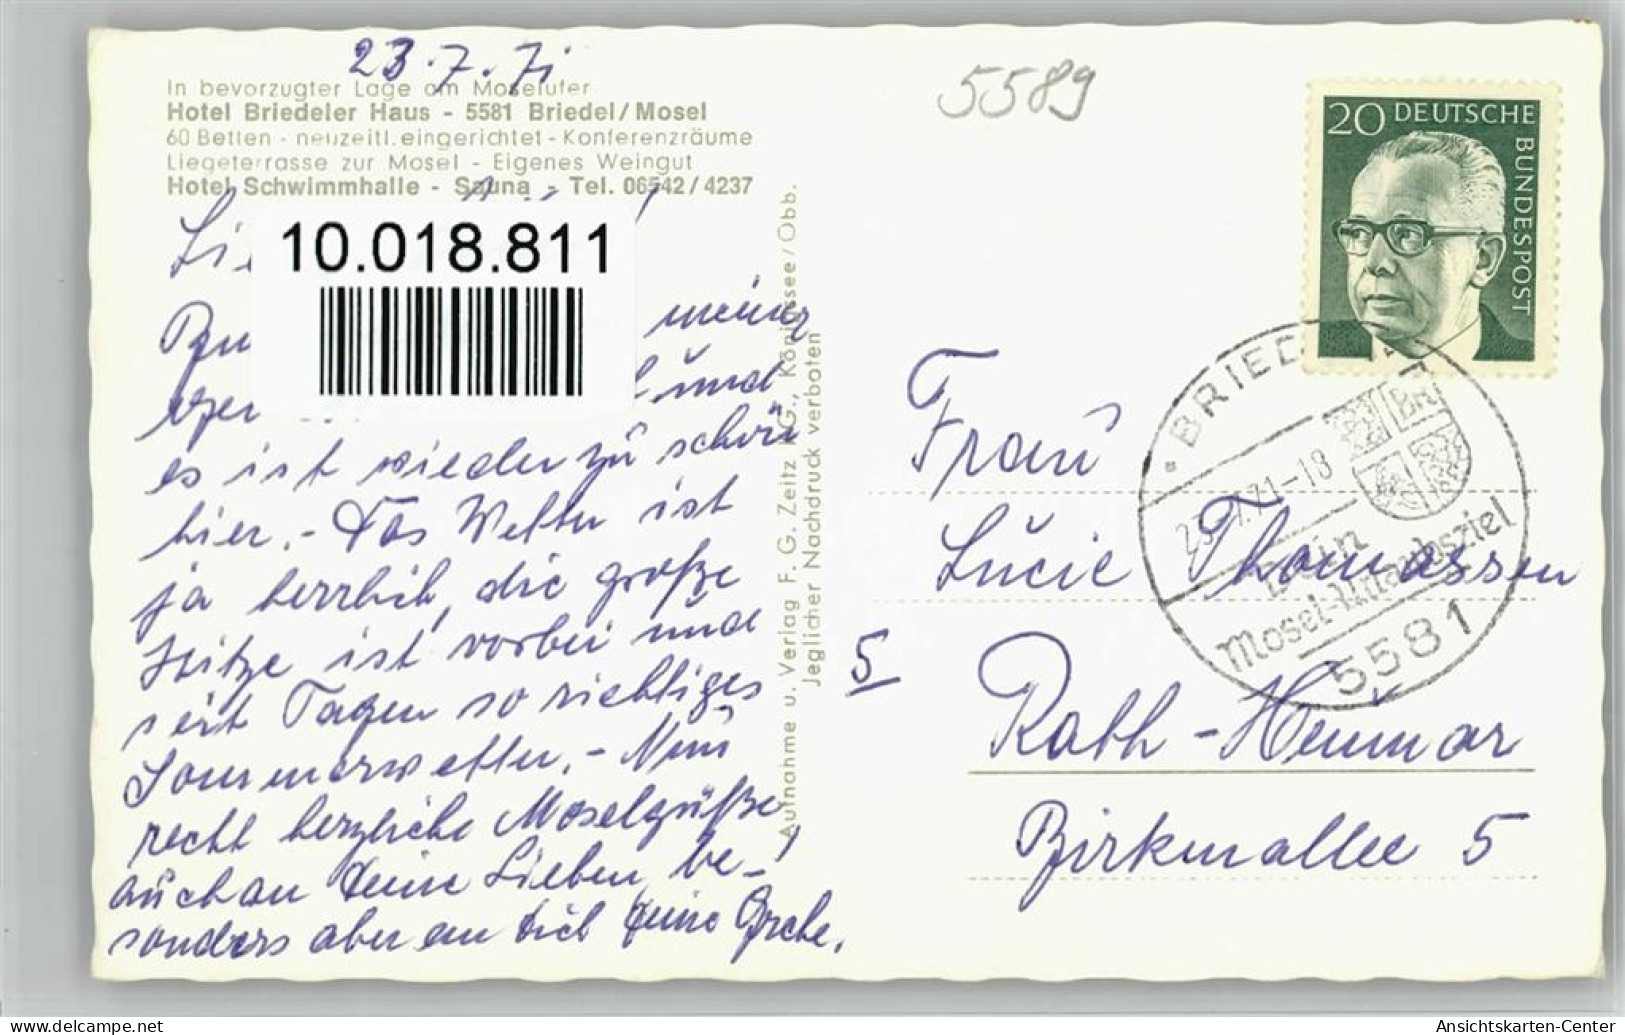 23.7.71
In bevorzugter Lage am Moselufer
Hotel Briedeler Haus - 5581 Briedel/Mosel
60 Betten - neuzeitl. eingerichtet - Konferenzräume
Liegeterrasse zur Mosel - Eigenes Weingut
Hotel Schwimmhalle - Sauna - Tel. 06542/4237
10.018.811
meiner
und
es ist wieder zu schön
hier. - Das Wetter ist
ja herrlich, die große
Hitze ist vorbei und
seit Tagen so richtiges
Sommerwetter. - Nun
recht herzliche Moselgrüße,
auch an Deine Lieben, be-
sonders aber an Dich Deine Grete.
Aufnahme u. Verlag F. G. Zeitz KG., Königssee/Obb.
Jeglicher Nachdruck verboten
5589
20 DEUTSCHE
BUNDESPOST
BRIEDEL
23.7.71-18
BRI
Dein
Mosel-Urlaubsziel
5581
Frau
Lucie Thomassen
5
Rath-Heumar
Birkenallee 5
www.delcampe.net
Ansichtskarten-Center